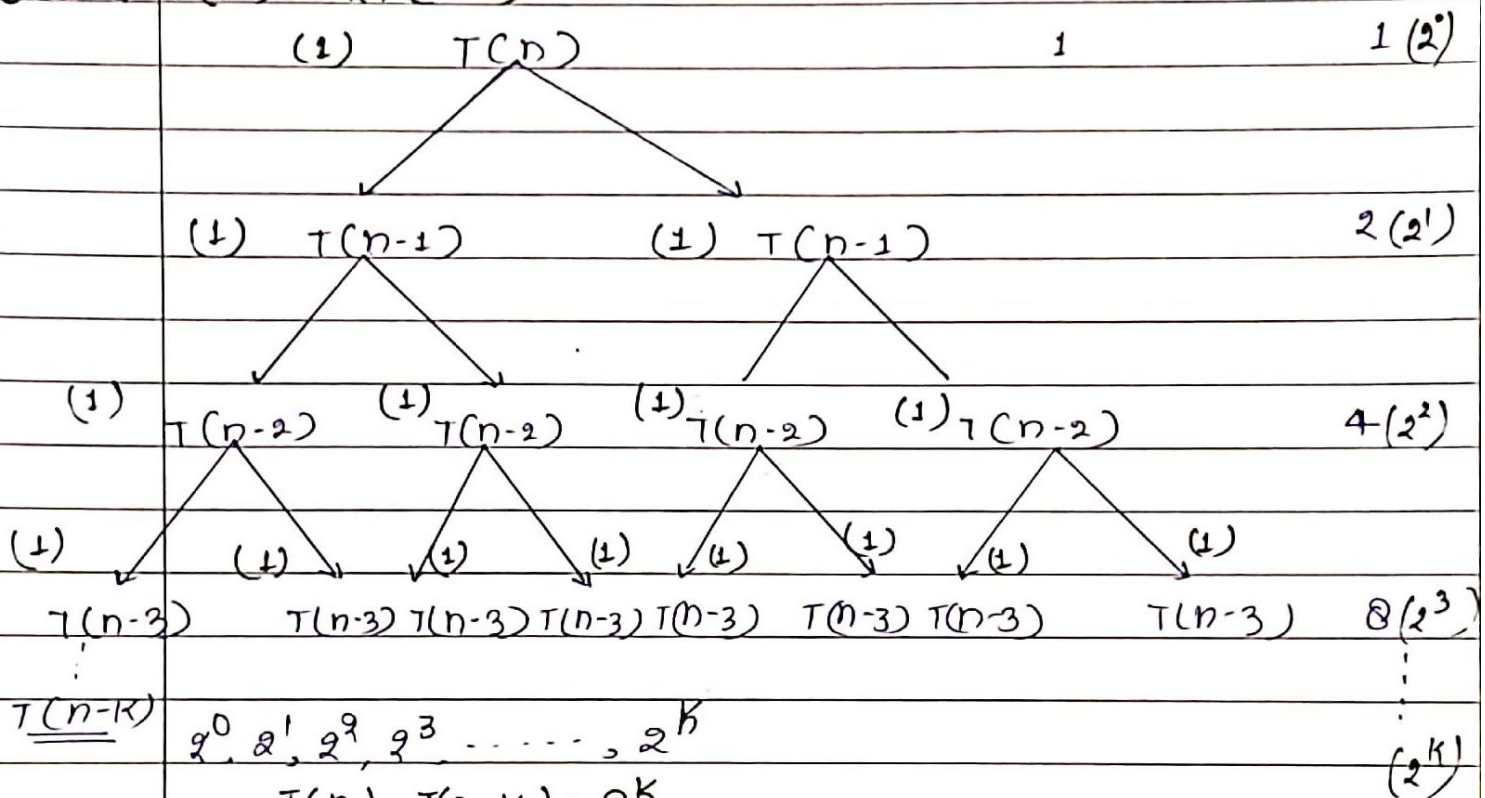 (1) T(n) 1 1 (2⁰)
(1) T(n-1) (1) T(n-1) 2 (2¹)
(1) T(n-2) (1) T(n-2) (1) T(n-2) (1) T(n-2) 4 (2²)
(1) (1) (1) (1) (1) (1) (1) (1)
T(n-3) T(n-3) T(n-3) T(n-3) T(n-3) T(n-3) T(n-3) T(n-3) 8 (2³)
T(n-K)
2⁰, 2¹, 2², 2³ ......, 2ᴷ
(2ᴷ)